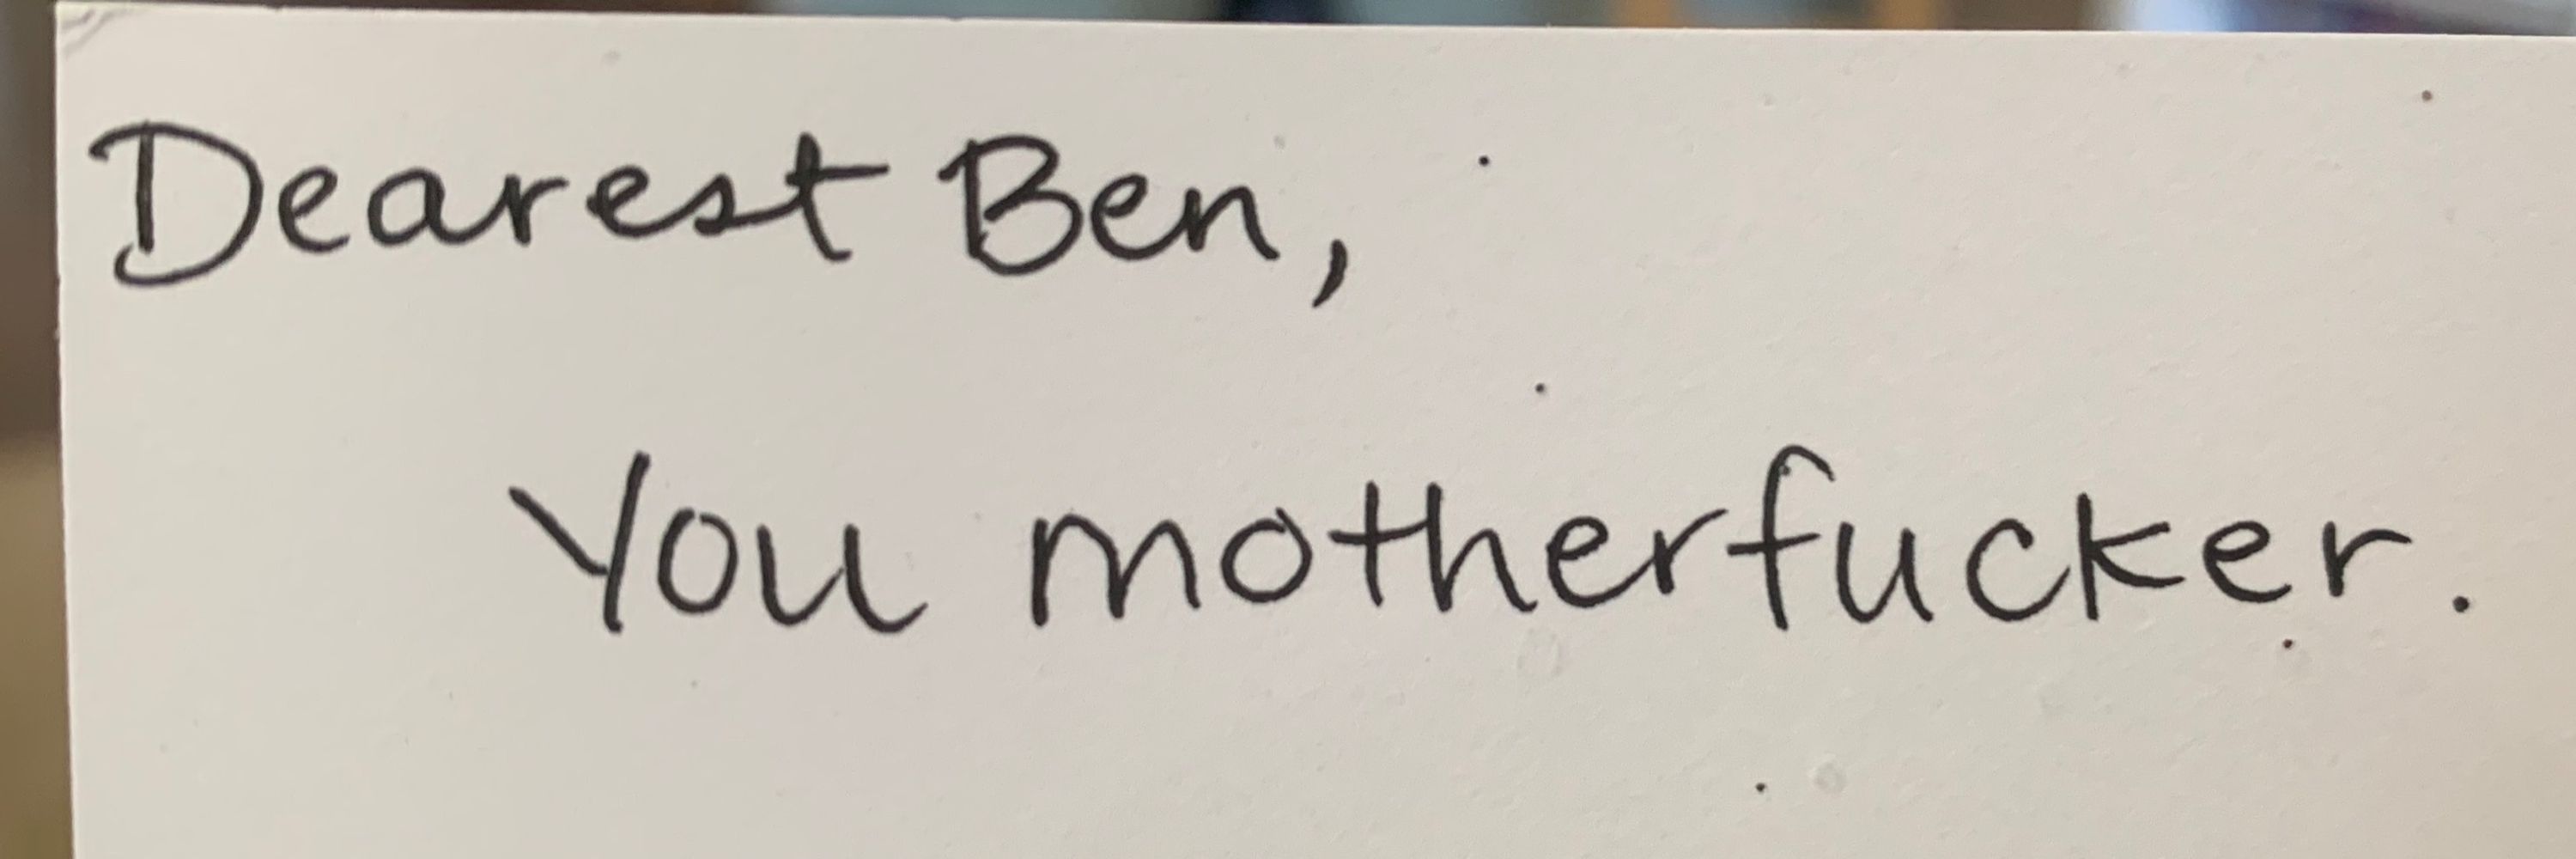 Dearest Ben,
You motherfucker.